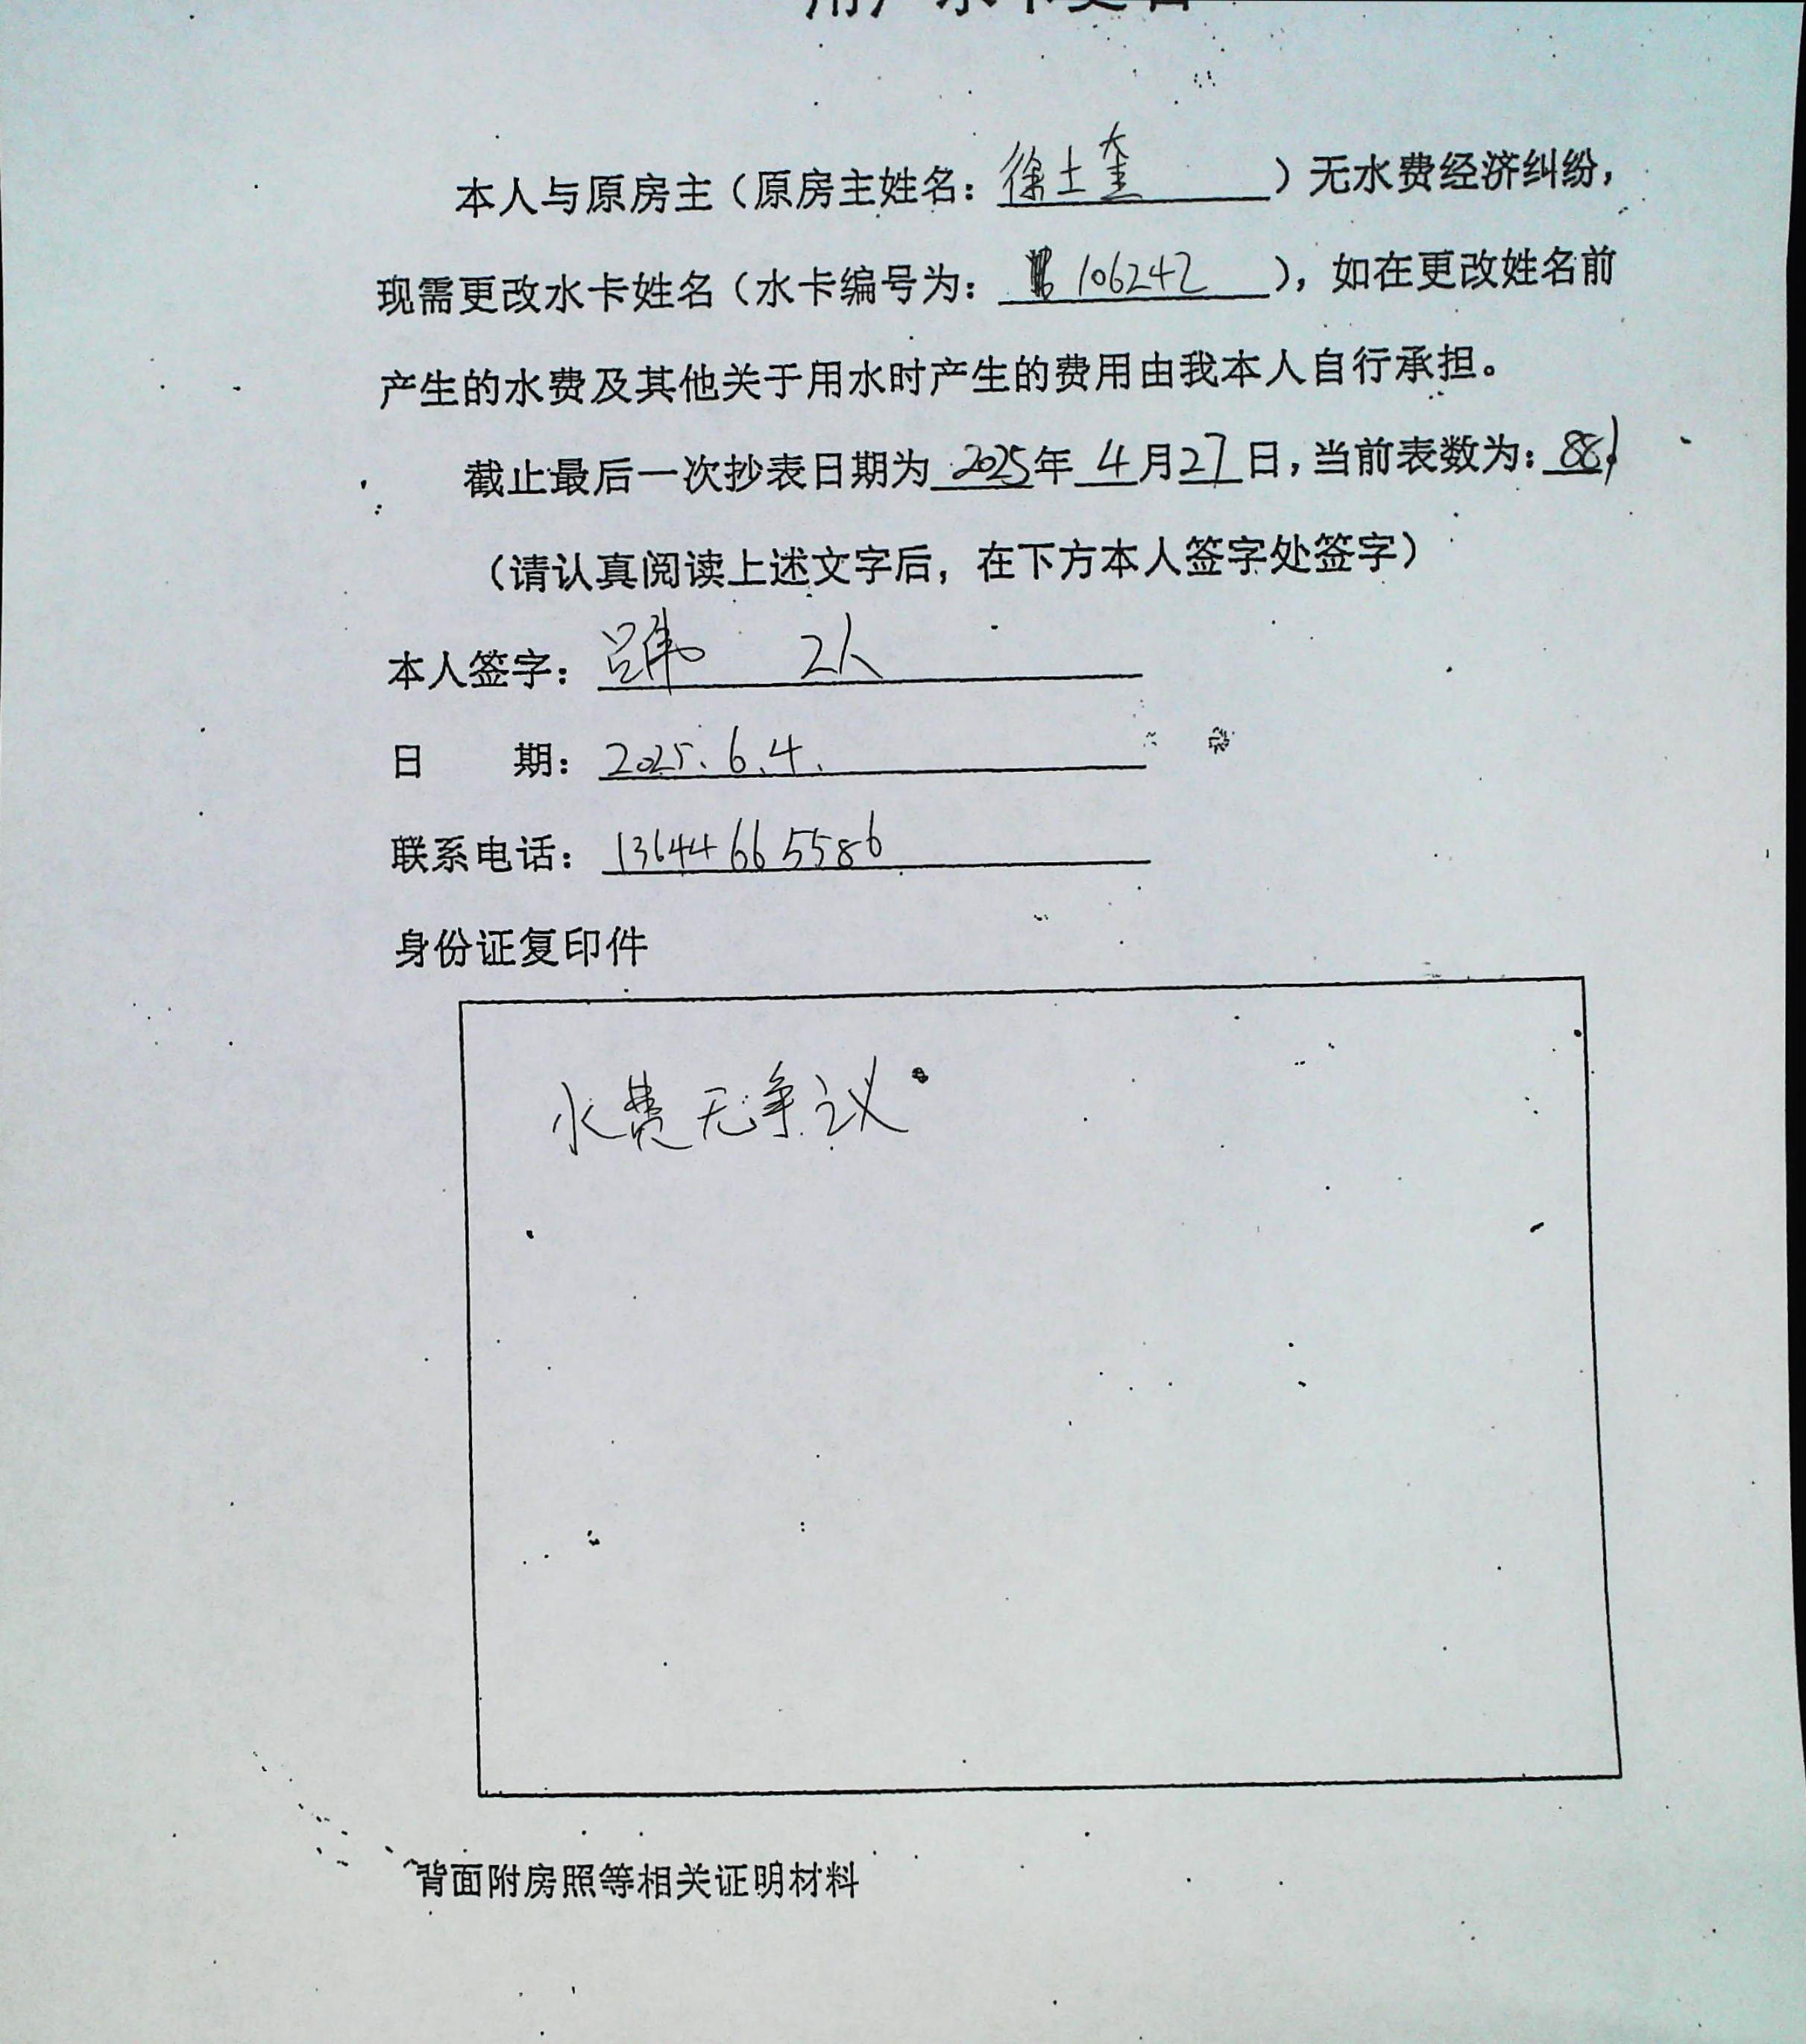 用户水卡更名
本人与原房主（原房主姓名：徐士奎）无水费经济纠纷，
现需更改水卡姓名（水卡编号为：106242），如在更改姓名前
产生的水费及其他关于用水时产生的费用由我本人自行承担。
截止最后一次抄表日期为2025年4月27日，当前表数为：881
（请认真阅读上述文字后，在下方本人签字处签字）
本人签字：吕伟 2人
日 期：2025.6.4.
联系电话：13644665586
身份证复印件
水费无争议
背面附房照等相关证明材料